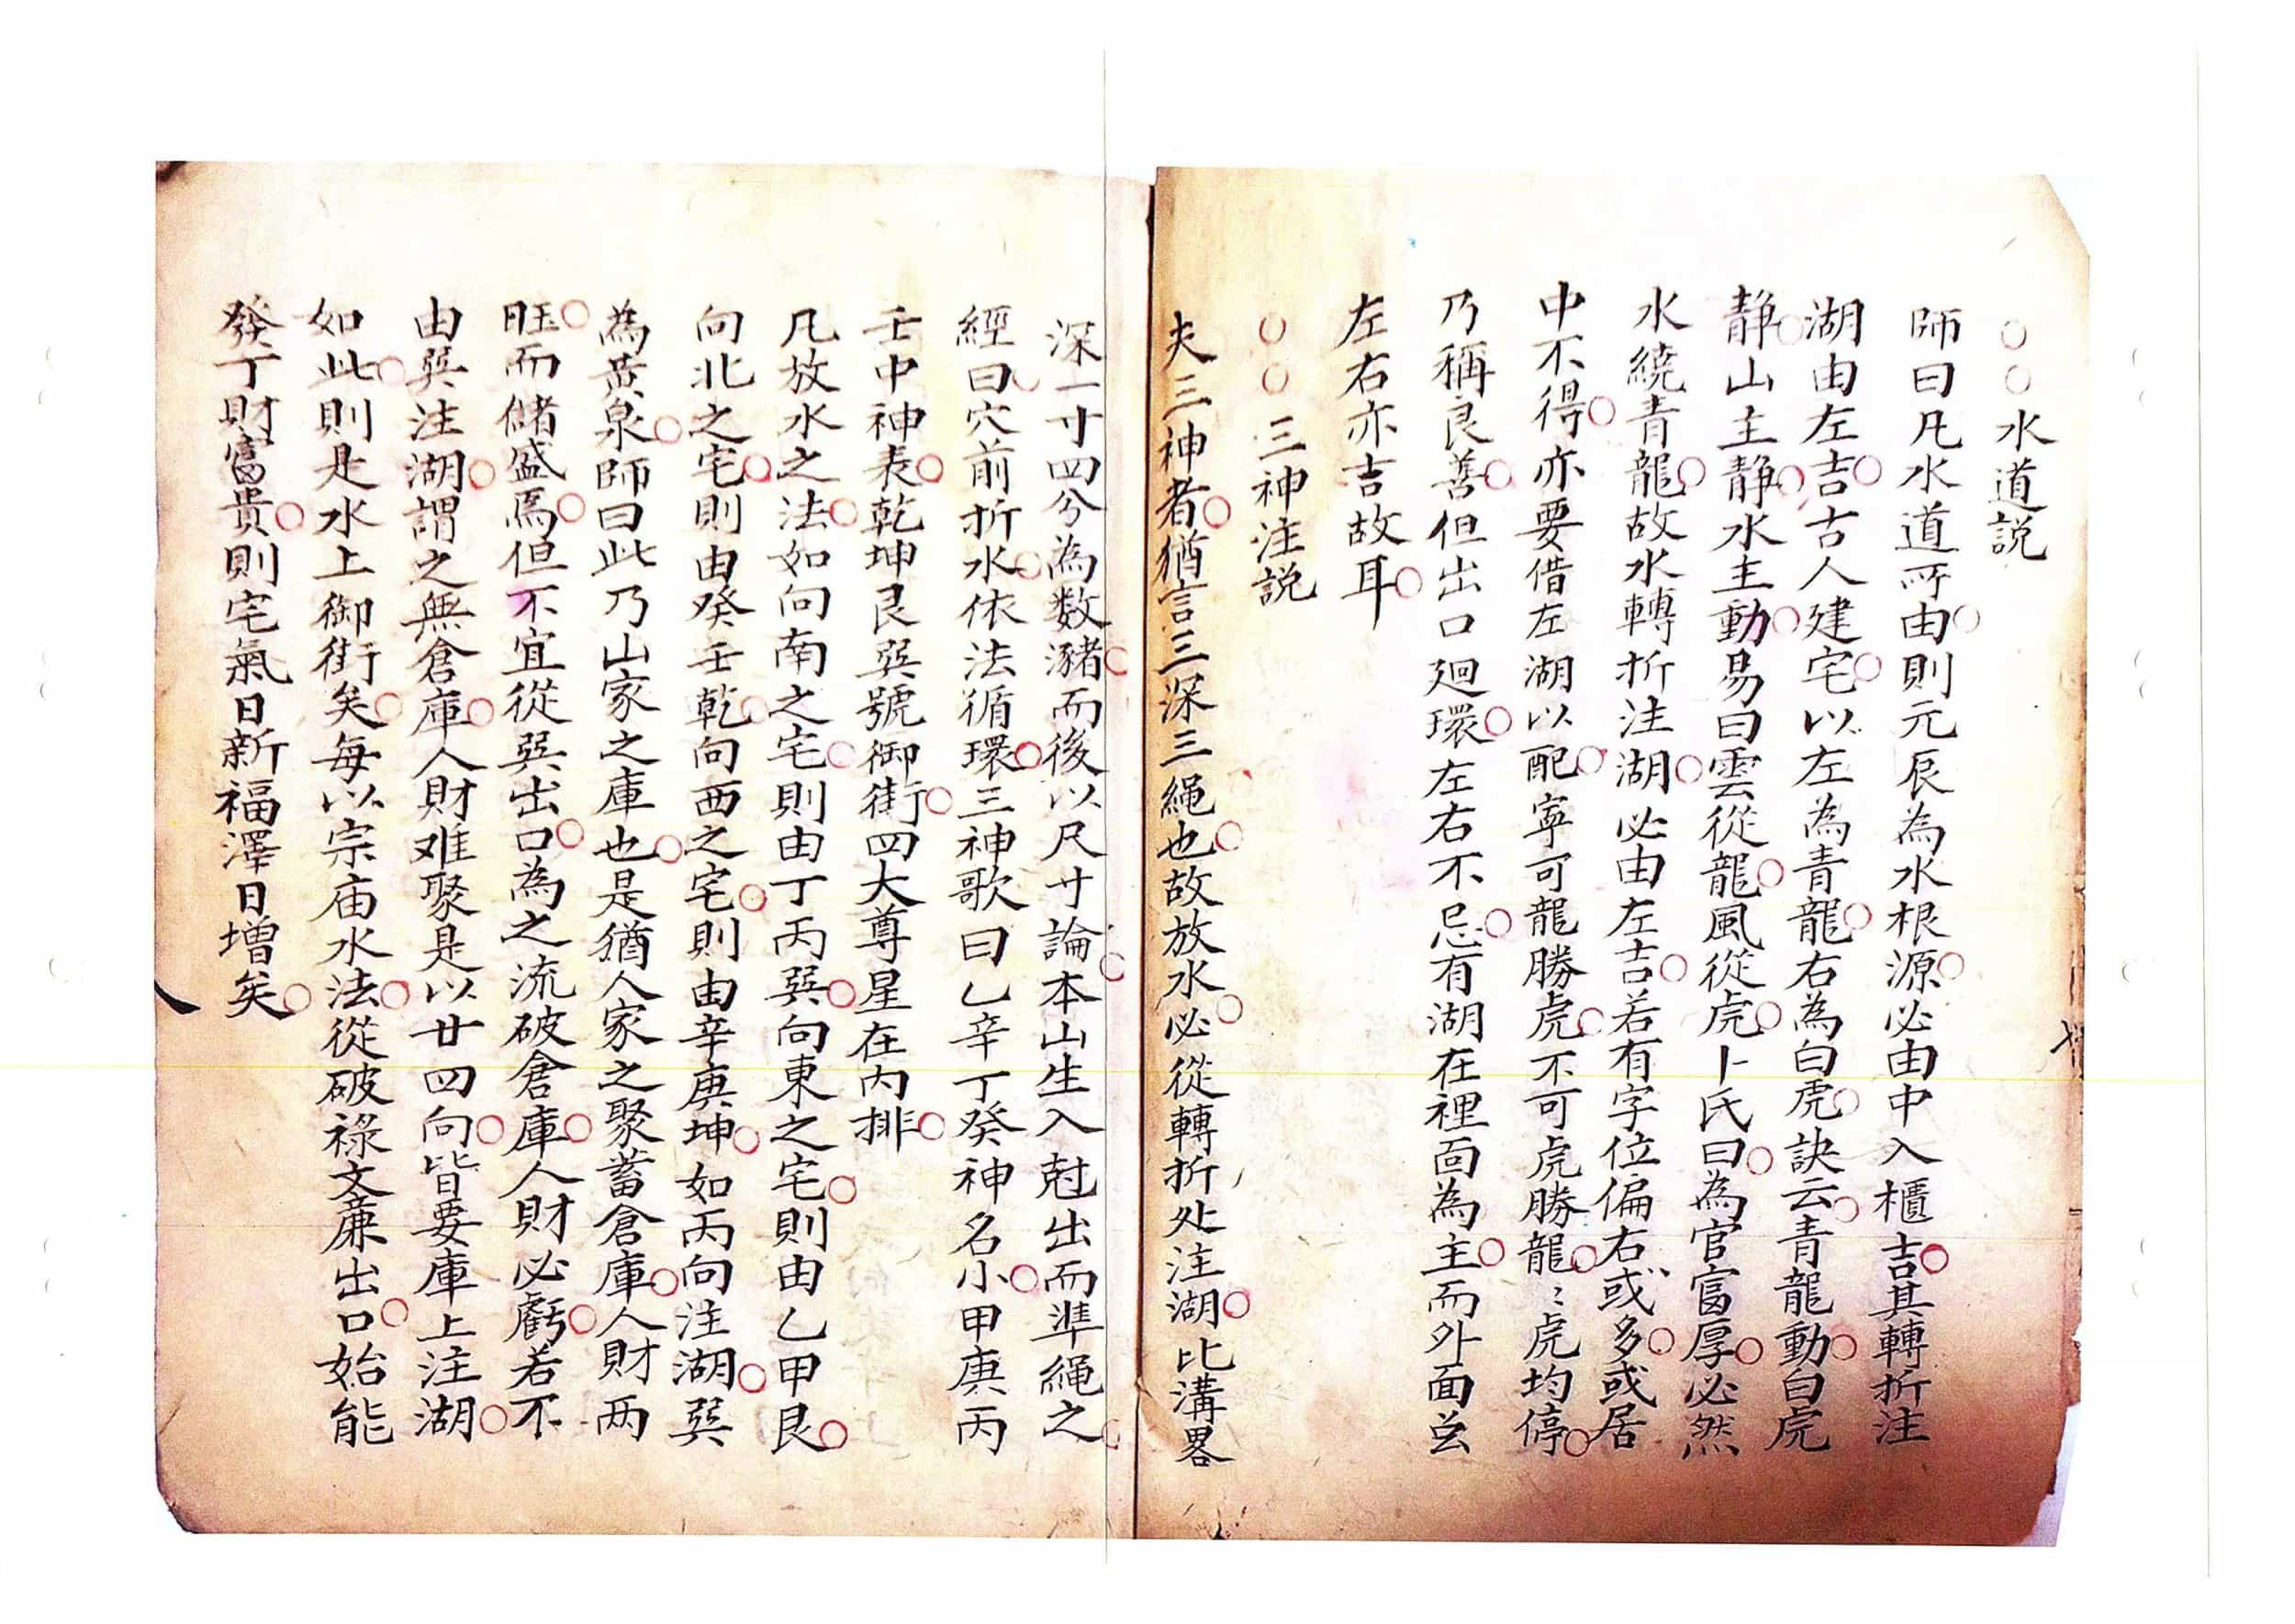 ○○水道説
師曰凡水道所由則元辰為水根源必由中入櫃吉其轉折注
湖由左吉古人建宅以左為青龍右為白虎訣云青龍動白虎
静山主静水主動易曰雲從龍風從虎卜氏曰為官富厚必然
水繞青龍故水轉折注湖必由左吉若有字位偏右或多或居
中不得亦要借左湖以配寧可龍勝虎不可虎勝龍〻虎均停
乃稱良善但出口廻環左右不忌有湖在裡面為主而外面兹
左右亦吉故耳
○○三神注説
夫三神者猶言三深三繩也故放水必從轉折处注湖比溝畧
深一寸四分為数瀦而後以尺寸論本山生入尅出而準繩之
經曰穴前折水依法循環三神歌曰乙辛丁癸神名小甲庚丙
壬中神表乾坤艮巽號御街四大尊星在内排
凡放水之法如向南之宅則由丁丙巽向東之宅則由乙甲艮
向北之宅則由癸壬乾向西之宅則由辛庚坤如丙向注湖巽
為黃泉師曰此乃山家之庫也是猶人家之聚蓄倉庫人財两
旺而儲盛焉但不宜從巽出口為之流破倉庫人財必虧若不
由巽注湖謂之無倉庫人財难聚是以廿四向皆要庫上注湖
如此則是水上御街矣每以宗庙水法從破祿文廉出口始能
發丁財富貴則宅氣日新福澤日增矣